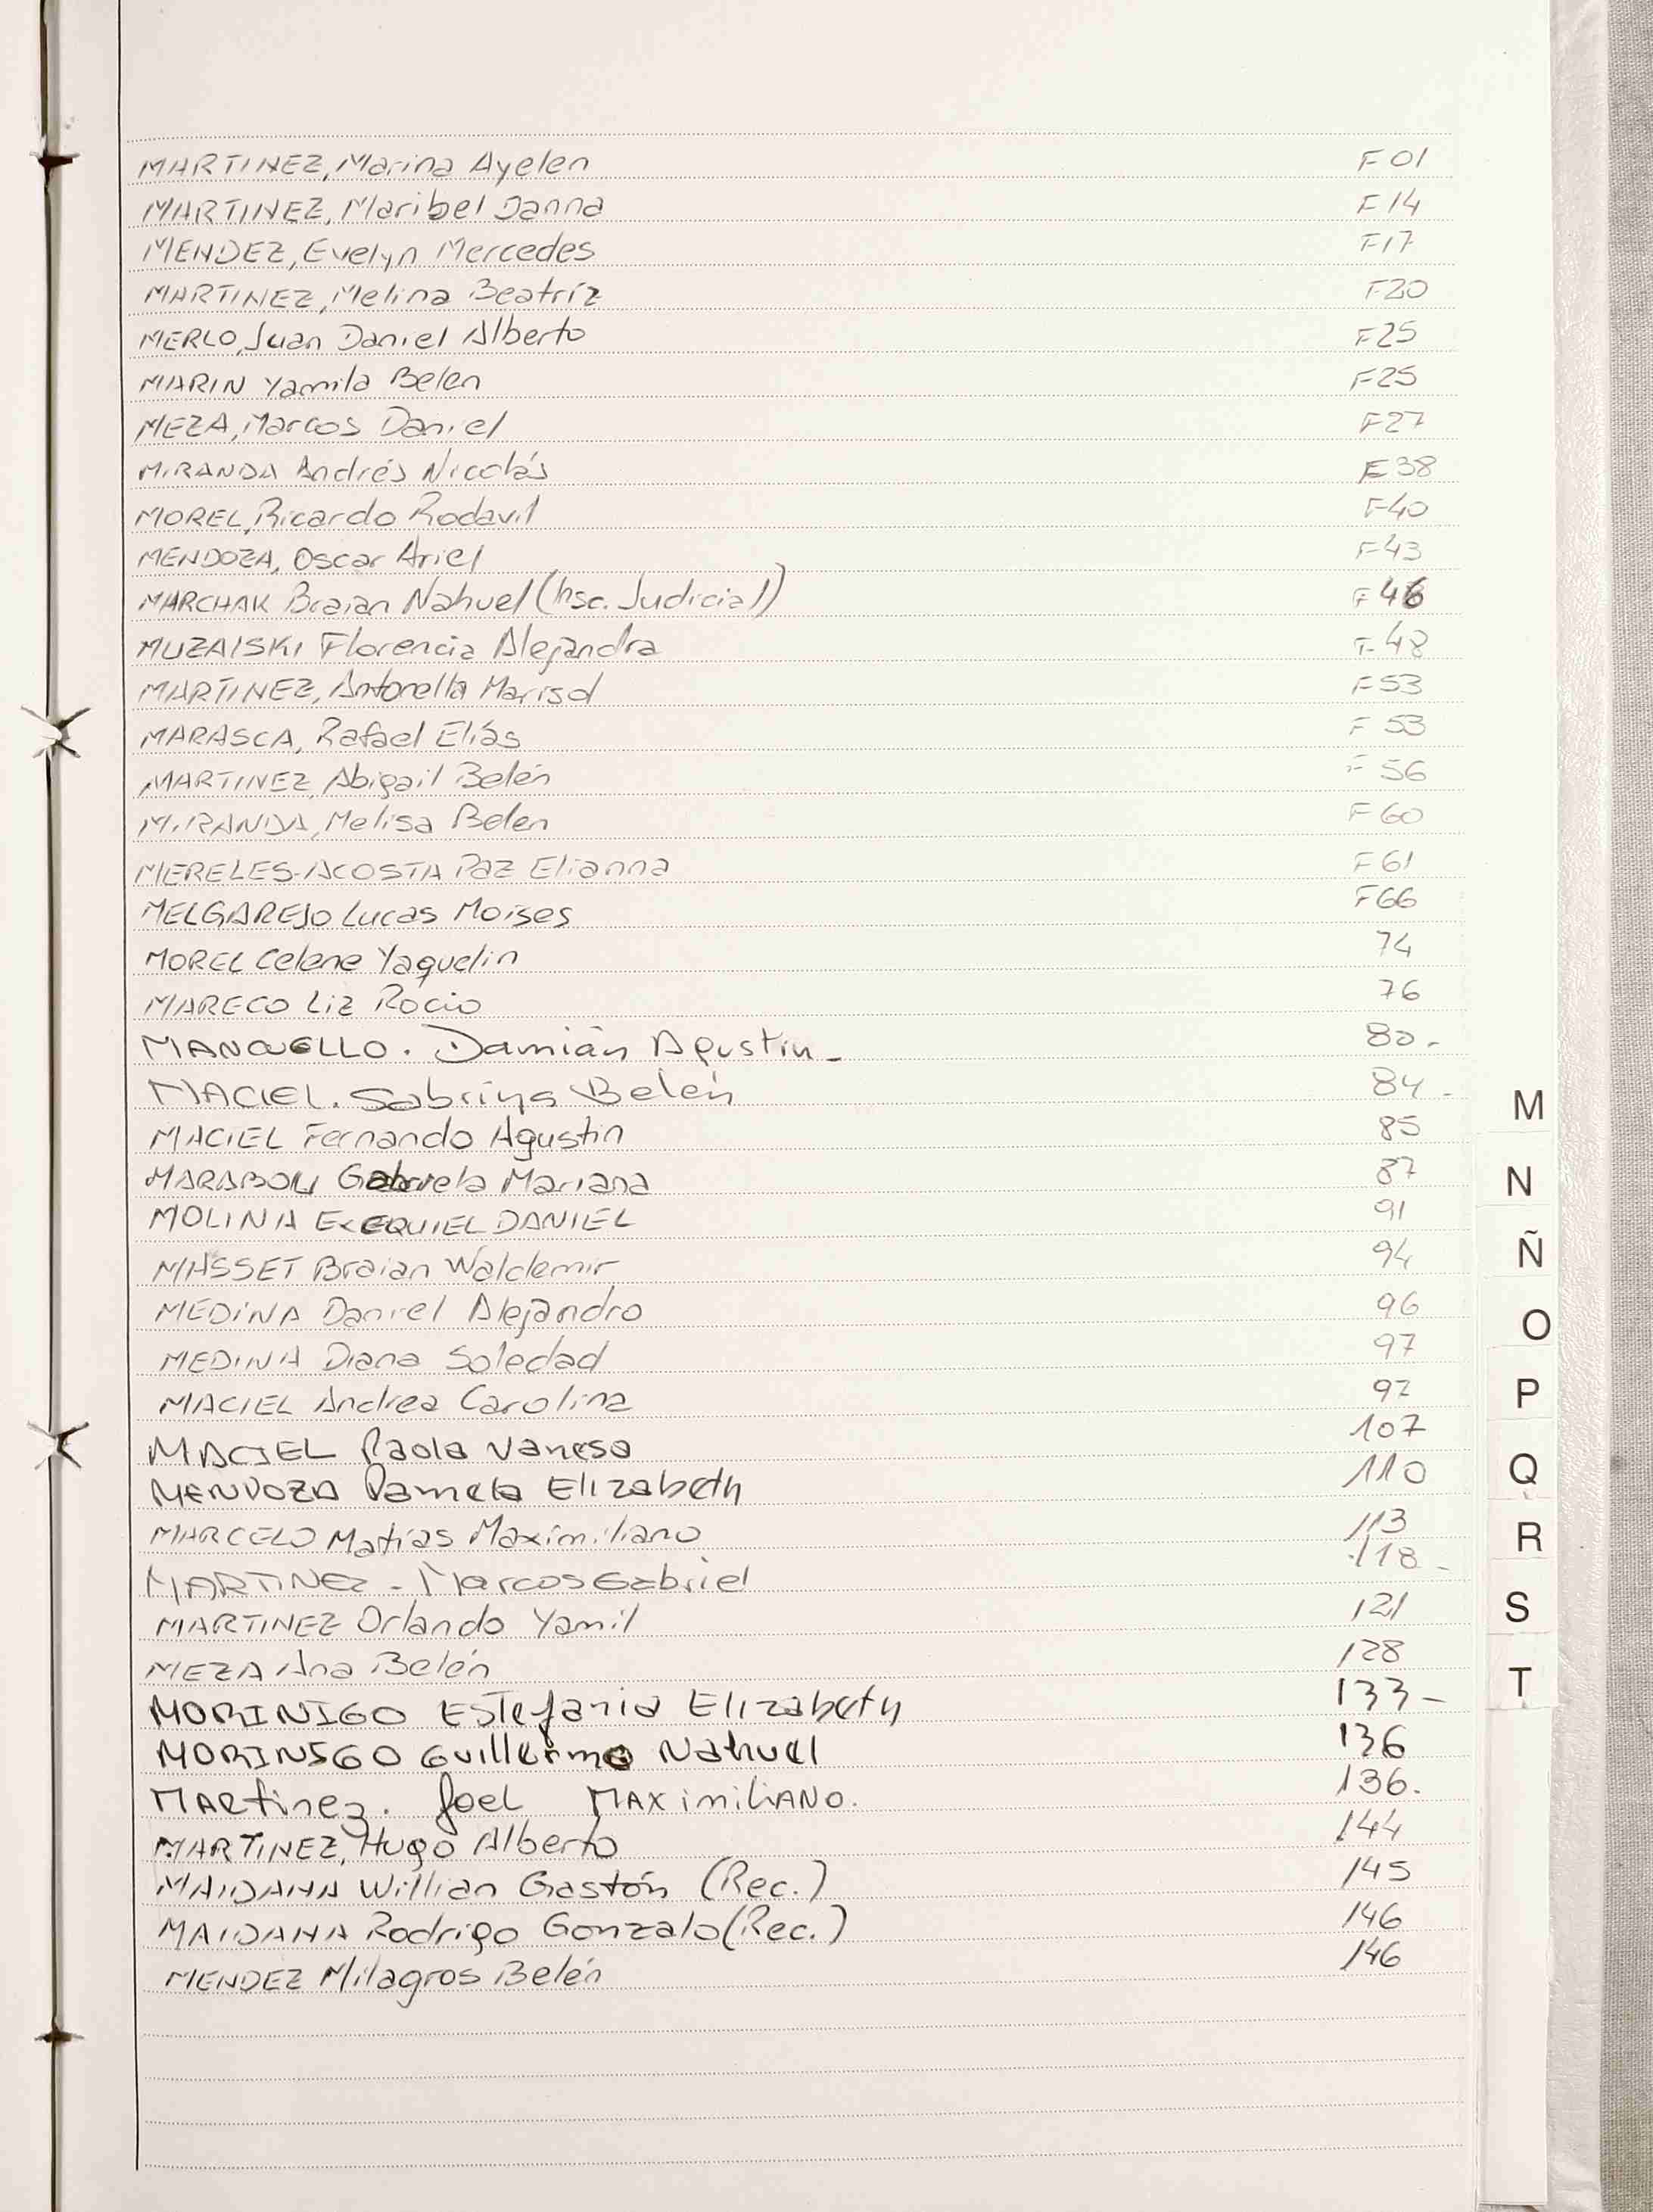 MARTINEZ, Marina Ayelen F 01
MARTINEZ, Maribel Janna F 14
MENDEZ, Evelyn Mercedes F17
MARTINEZ, Melina Beatríz F20
MERLO, Juan Daniel Alberto F25
MARIN Yamila Belen F25
MEZA, Marcos Daniel F27
MIRANDA Andrés Nicolás F38
MOREL, Ricardo Rodavil F40
MENDOZA, Oscar Ariel F43
MARCHAK Braian Nahuel (Insc. Judicial) F46
MUZAISKI Florencia Alejandra F48
MARTINEZ, Antonella Marisol F53
MARASCA, Rafael Elías F 53
MARTINEZ, Abigail Belén F 56
MIRANDA, Melisa Belen F 60
MERELES-ACOSTA Paz Elianna F61
MELGAREJO Lucas Moises F66
MOREL Celene Yaquelin 74
MARECO Liz Rocio 76
MANCUELLO. Damián Agustin- 80.
MACIEL. Sabrina Belén 84-
MACIEL Fernando Agustin 85
Gabriela Mariana 87
MOLINA EXEQUIEL DANIEL 91
MASSET Braian Waldemir 94
MEDINA Daniel Alejandro 96
MEDINA Diana Soledad 97
MACIEL Andrea Carolina 97
MACIEL Paola Vanesa 107
MENDOZA Pamela Elizabeth 110
MARCELO Matías Maximiliano 113
MARTINEZ - Marcos Gabriel 118-
MARTINEZ Orlando Yamil 121
MEZA Ana Belén 128
MORINIGO Estefania Elizabeth 133-
MORINIGO Guillermo Nahuel 136
MARtinez. Joel MAXimiliANO. 136.
MARTINEZ, Hugo Alberto 144
MAIDANA Willian Gastón (Rec.) 145
MAIDANA Rodrigo Gonzalo (Rec.) 146
MENDEZ Milagros Belén 146
M
N
Ñ
O
P
Q
R
S
T